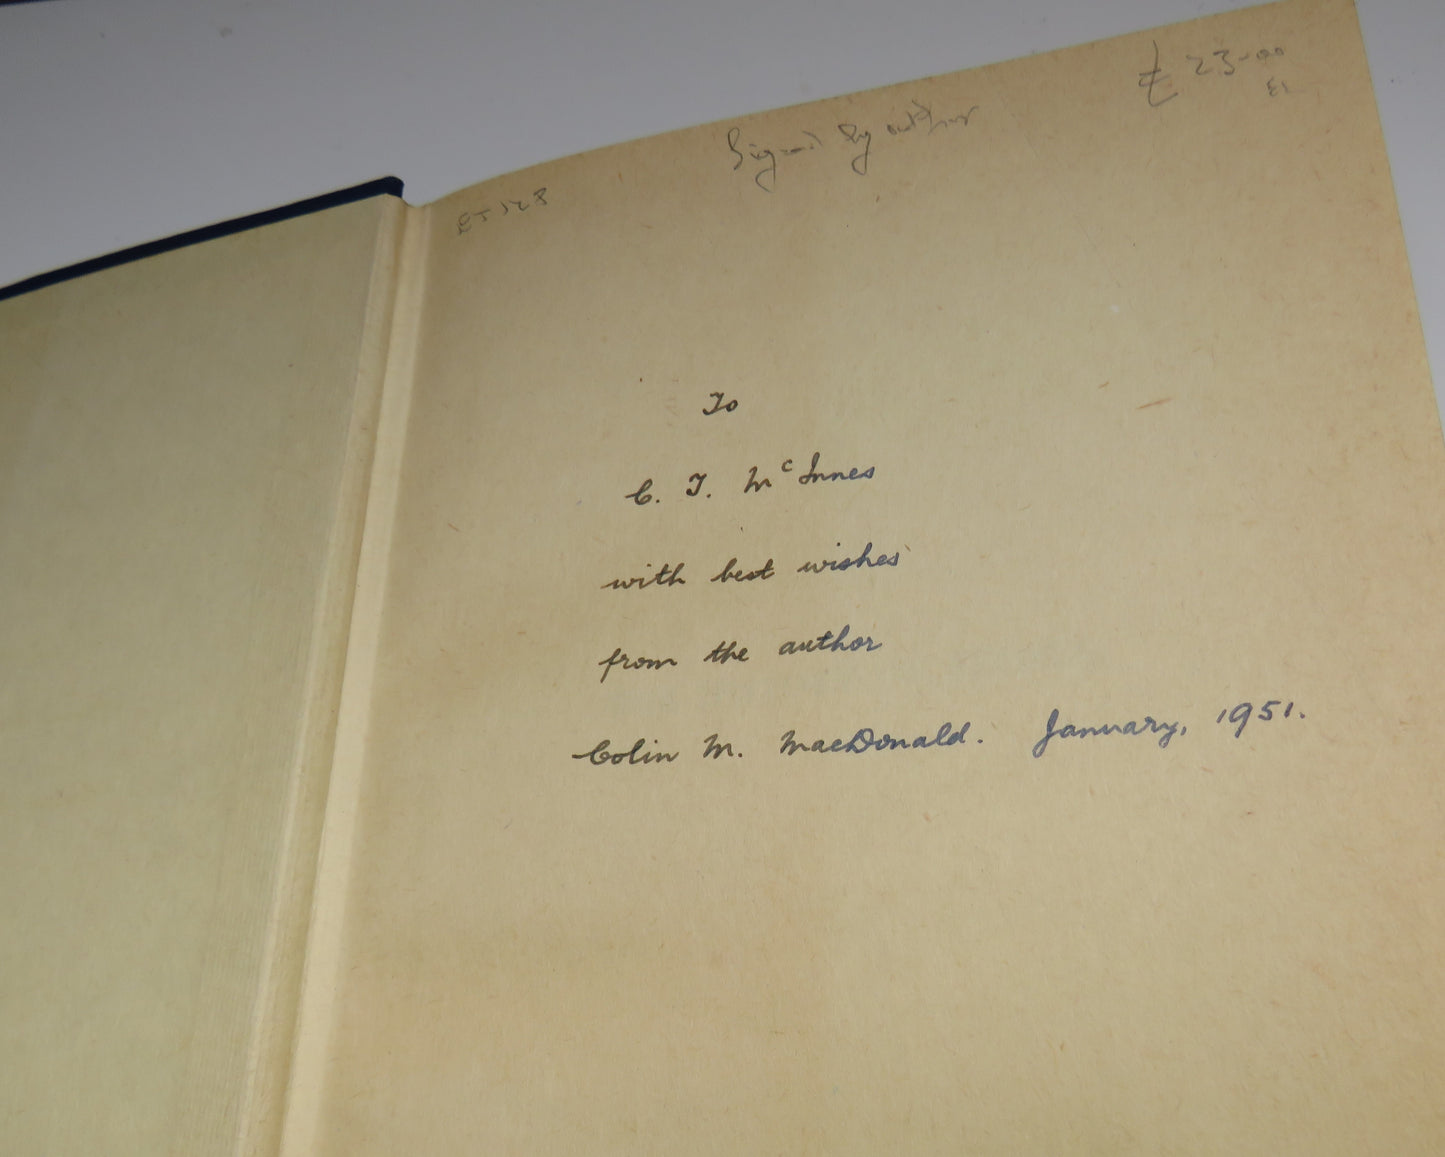 £ 23-00
Signed by author
To
C. T. McInnes
with best wishes
from the author
Colin M. MacDonald. January, 1951.